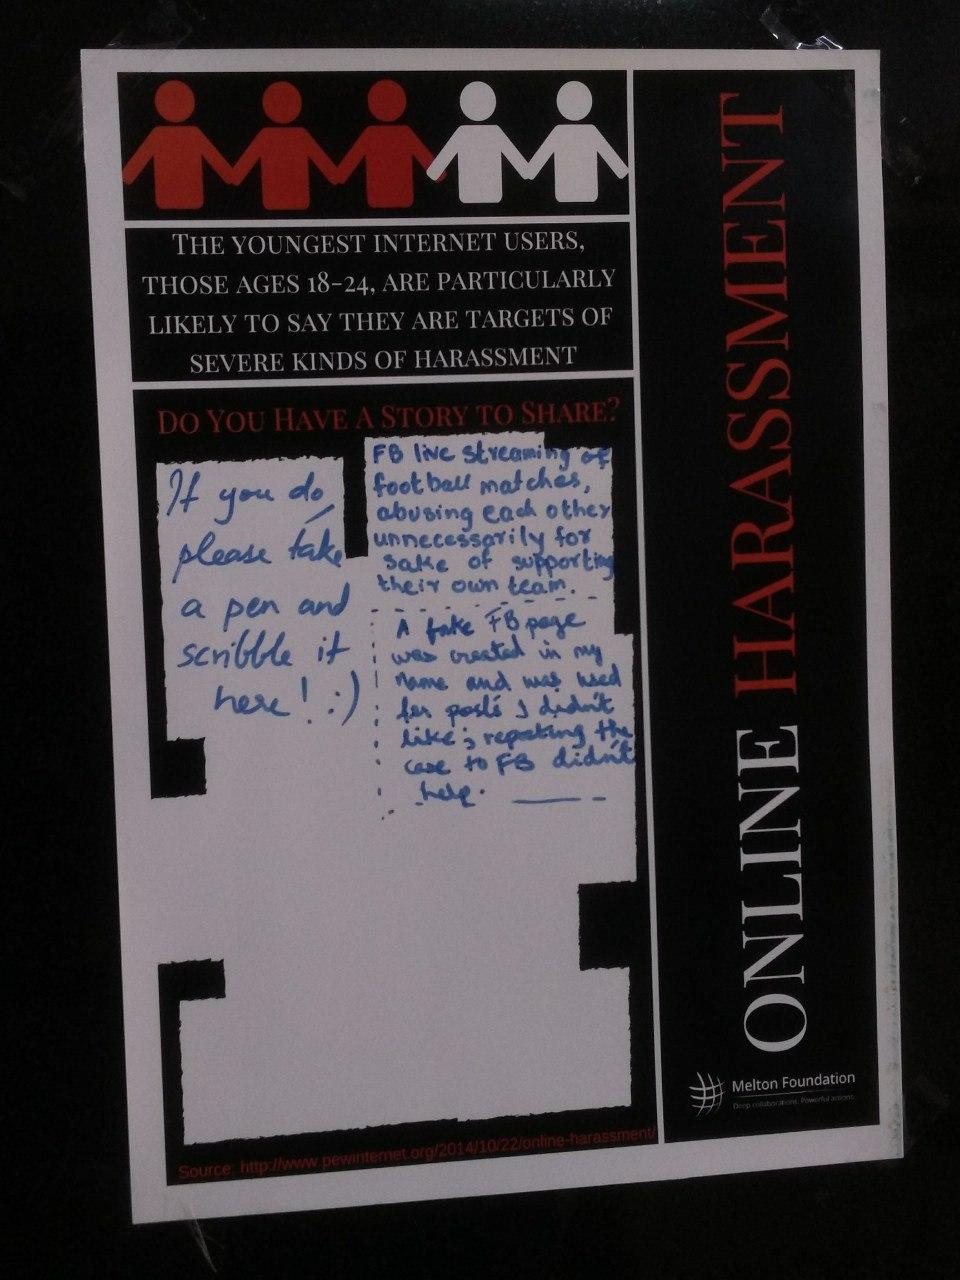 THE YOUNGEST INTERNET USERS,
THOSE AGES 18-24, ARE PARTICULARLY
LIKELY TO SAY THEY ARE TARGETS OF
SEVERE KINDS OF HARASSMENT
DO YOU HAVE A STORY TO SHARE?
If you do,
please take
a pen and
scribble it
here! :)
FB live streaming of
football matches,
abusing each other
unnecessarily for
sake of supporting
their own team.
A fake FB page
was created in my
name and was used
for posts I didn't
like; reporting the
case to FB didn't
help.
Source: http://www.pewinternet.org/2014/10/22/online-harassment/
ONLINE HARASSMENT
Melton Foundation
Deep collaborations. Powerful actions.